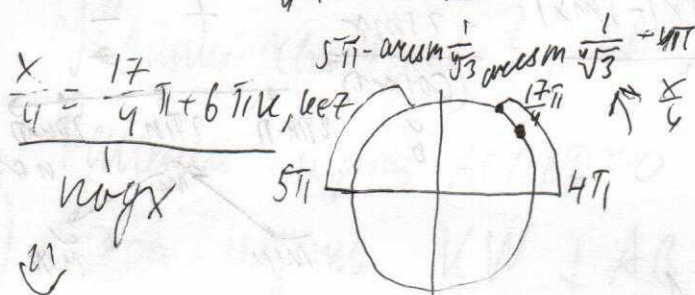 5π - arcsin 1/∜3 arcsin 1/∜3 + 4π
x/4 = 17/4 π + 6πk, k∈Z
17/4 π
x/4
подх
5π
4π